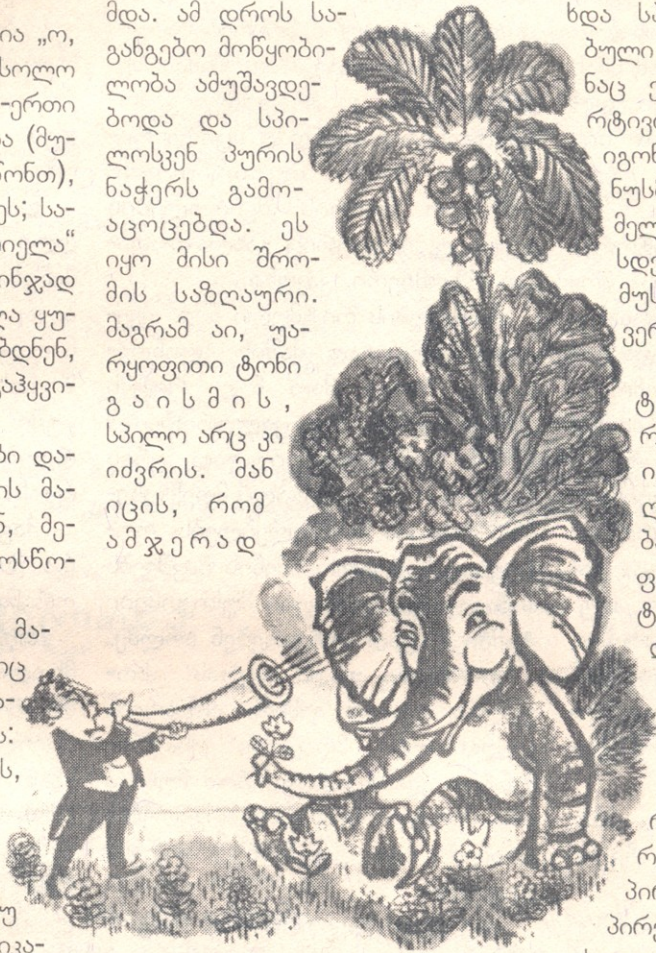 ია „ო,
სოლო
-ერთი
ა (მუ-
ონთ),
ეს; სა-
იელა“
ინჯად
ლა ყუ-
ბდნენ,
გაჰყვი-
ბი და-
ის მა-
ნ, მე-
ოსწო-
მა-
მდა. ამ დროს სა-
განგებო მოწყობი-
ლობა ამუშავდე-
ბოდა და სპი-
ლოსკენ პურის
ნაჭერს გამო-
აცოცებდა. ეს
იყო მისი შრო-
მის საზღაური.
მაგრამ აი, უა-
რყოფითი ტონი
გაისმის,
სპილო არც კი
იძვრის. მან
იცის, რომ
ამჯერად
ხდა სპ
ბული
ნაც ე
რტივ
იგონ
ნუსხ
მელ
სდე
მუს
ვერ
ტ
რ
ი
ღ
ბა
ფ
ტ
რ
პირ
პირე